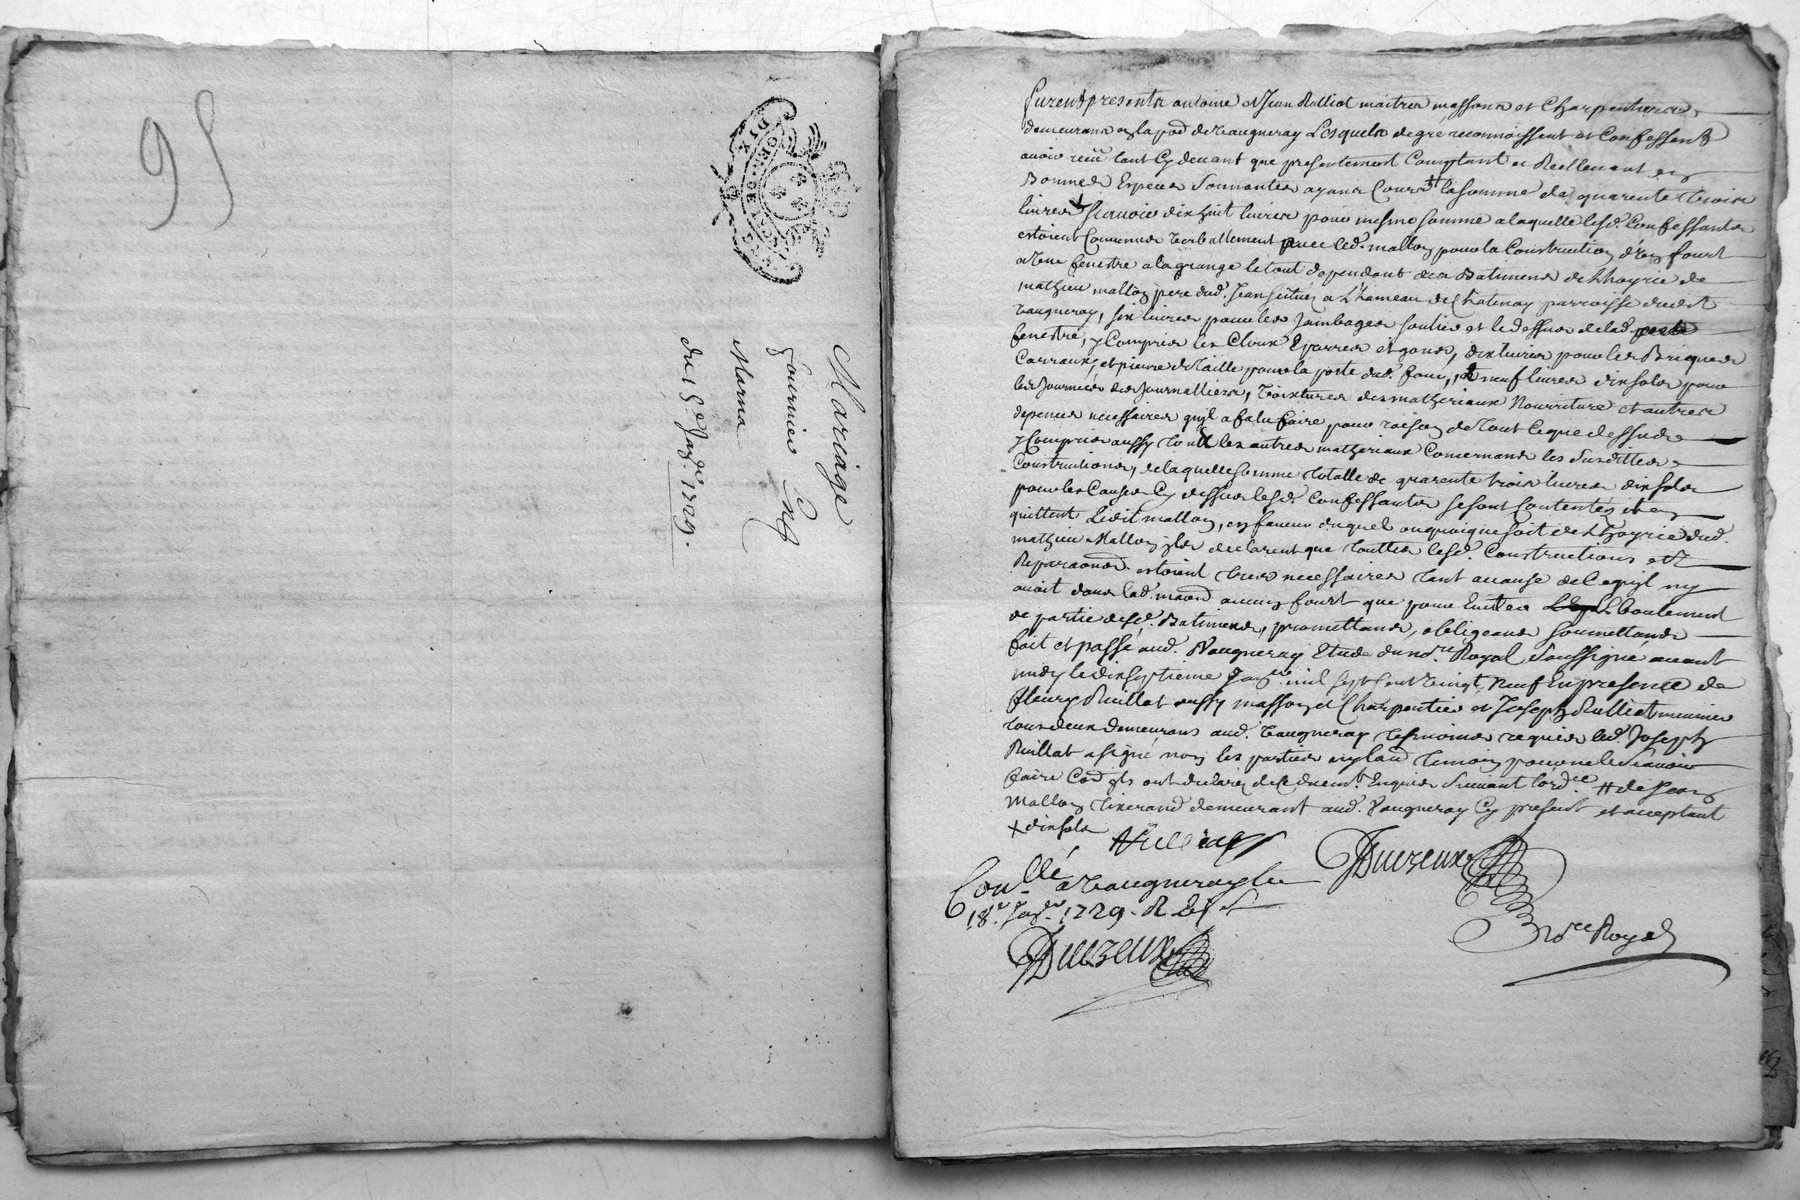 95
GEN. DE LYON
DIX DEN.
Mariage
Fournier Et
Marna
du 15e Janr. 1729.
furent presents antoine et Jean Rulliat maitres massons et Charpentiers
demeurans en la pad de Vaugneray Lesquels de gré reconnoissent et Confessent
avoir reçû tant Cy devant que presentement Comptant et Reellement en
Bonnes Especes Sonnantes ayans Cours # la somme de quarente trois
livres X Scavoir dix huit livres pour mesme somme a laquelle lesd. Confessants
estoient Convenus verballement avec led. mallon pour la Construction d'un fourt
et une fenestre a la grange le tout dependant des Batimens de l'hoyrie de
mathieu mallon pere dud. Jean situés a L'hameau de Chatenay parroisse dudit
Vaugneray, six livres pour les Jambages soulier et le dessus de lad. porte
fenestre, y Compris les Cloux Eparres et gonds, dix livres pour les Briques
Carraux, et pierre de Taille pour la porte dud. four, & neuf livres dix sols pour
les Journées des Journalliers, voixtures des matheriaux Nourriture et autres
depences necessaires qu'il a falu faire pour raison de Tout Ce que dessus
y Compris aussy tout les autres matheriaux Concernans les Susdittes
Constructions, de laquelle somme totalle de quarente trois livres dix sols
pour les Causes Cy dessus lesd. Confessants se sont Contentés et en
quittent Ledit mallon, en faveur duquel ou quoique soit de l'hoyrie dud.
mathieu Mallon ils declarent que touttes lesd. Constructions et
Reparaons estoient tres necessaires tant a cause de Ce qu'il ny
avoit dans lad. maon aucun fourt que pour Eviter L'Eboulement
de partie desd. Batimens, promettans, obligeans soumettans
fait et passé aud. Vaugneray Etude du nore. Royal Soussigné avant
midy le dix septieme Janer. mil sept cent vingt Neuf En presence de
fleury Ruillat aussy masson et Charpentier et Joseph Rulliat meunier
tous deux demeurans aud. Vaugneray tesmoins requis led. Joseph
Ruillat a signé non les parties ny lautre temoin pour ne le Scavoir
faire Comme ils ont declaré de Ce duemt. Enquis Suivant lord.ce # de Jean
Mallon tixerand demeurant aud. Vaugneray Cy present et acceptant
X dix sols
Rullias
Conllé a Vaugneray le
18e. Janer. 1729. R
Duezeux
Duezeux
Nore Royal